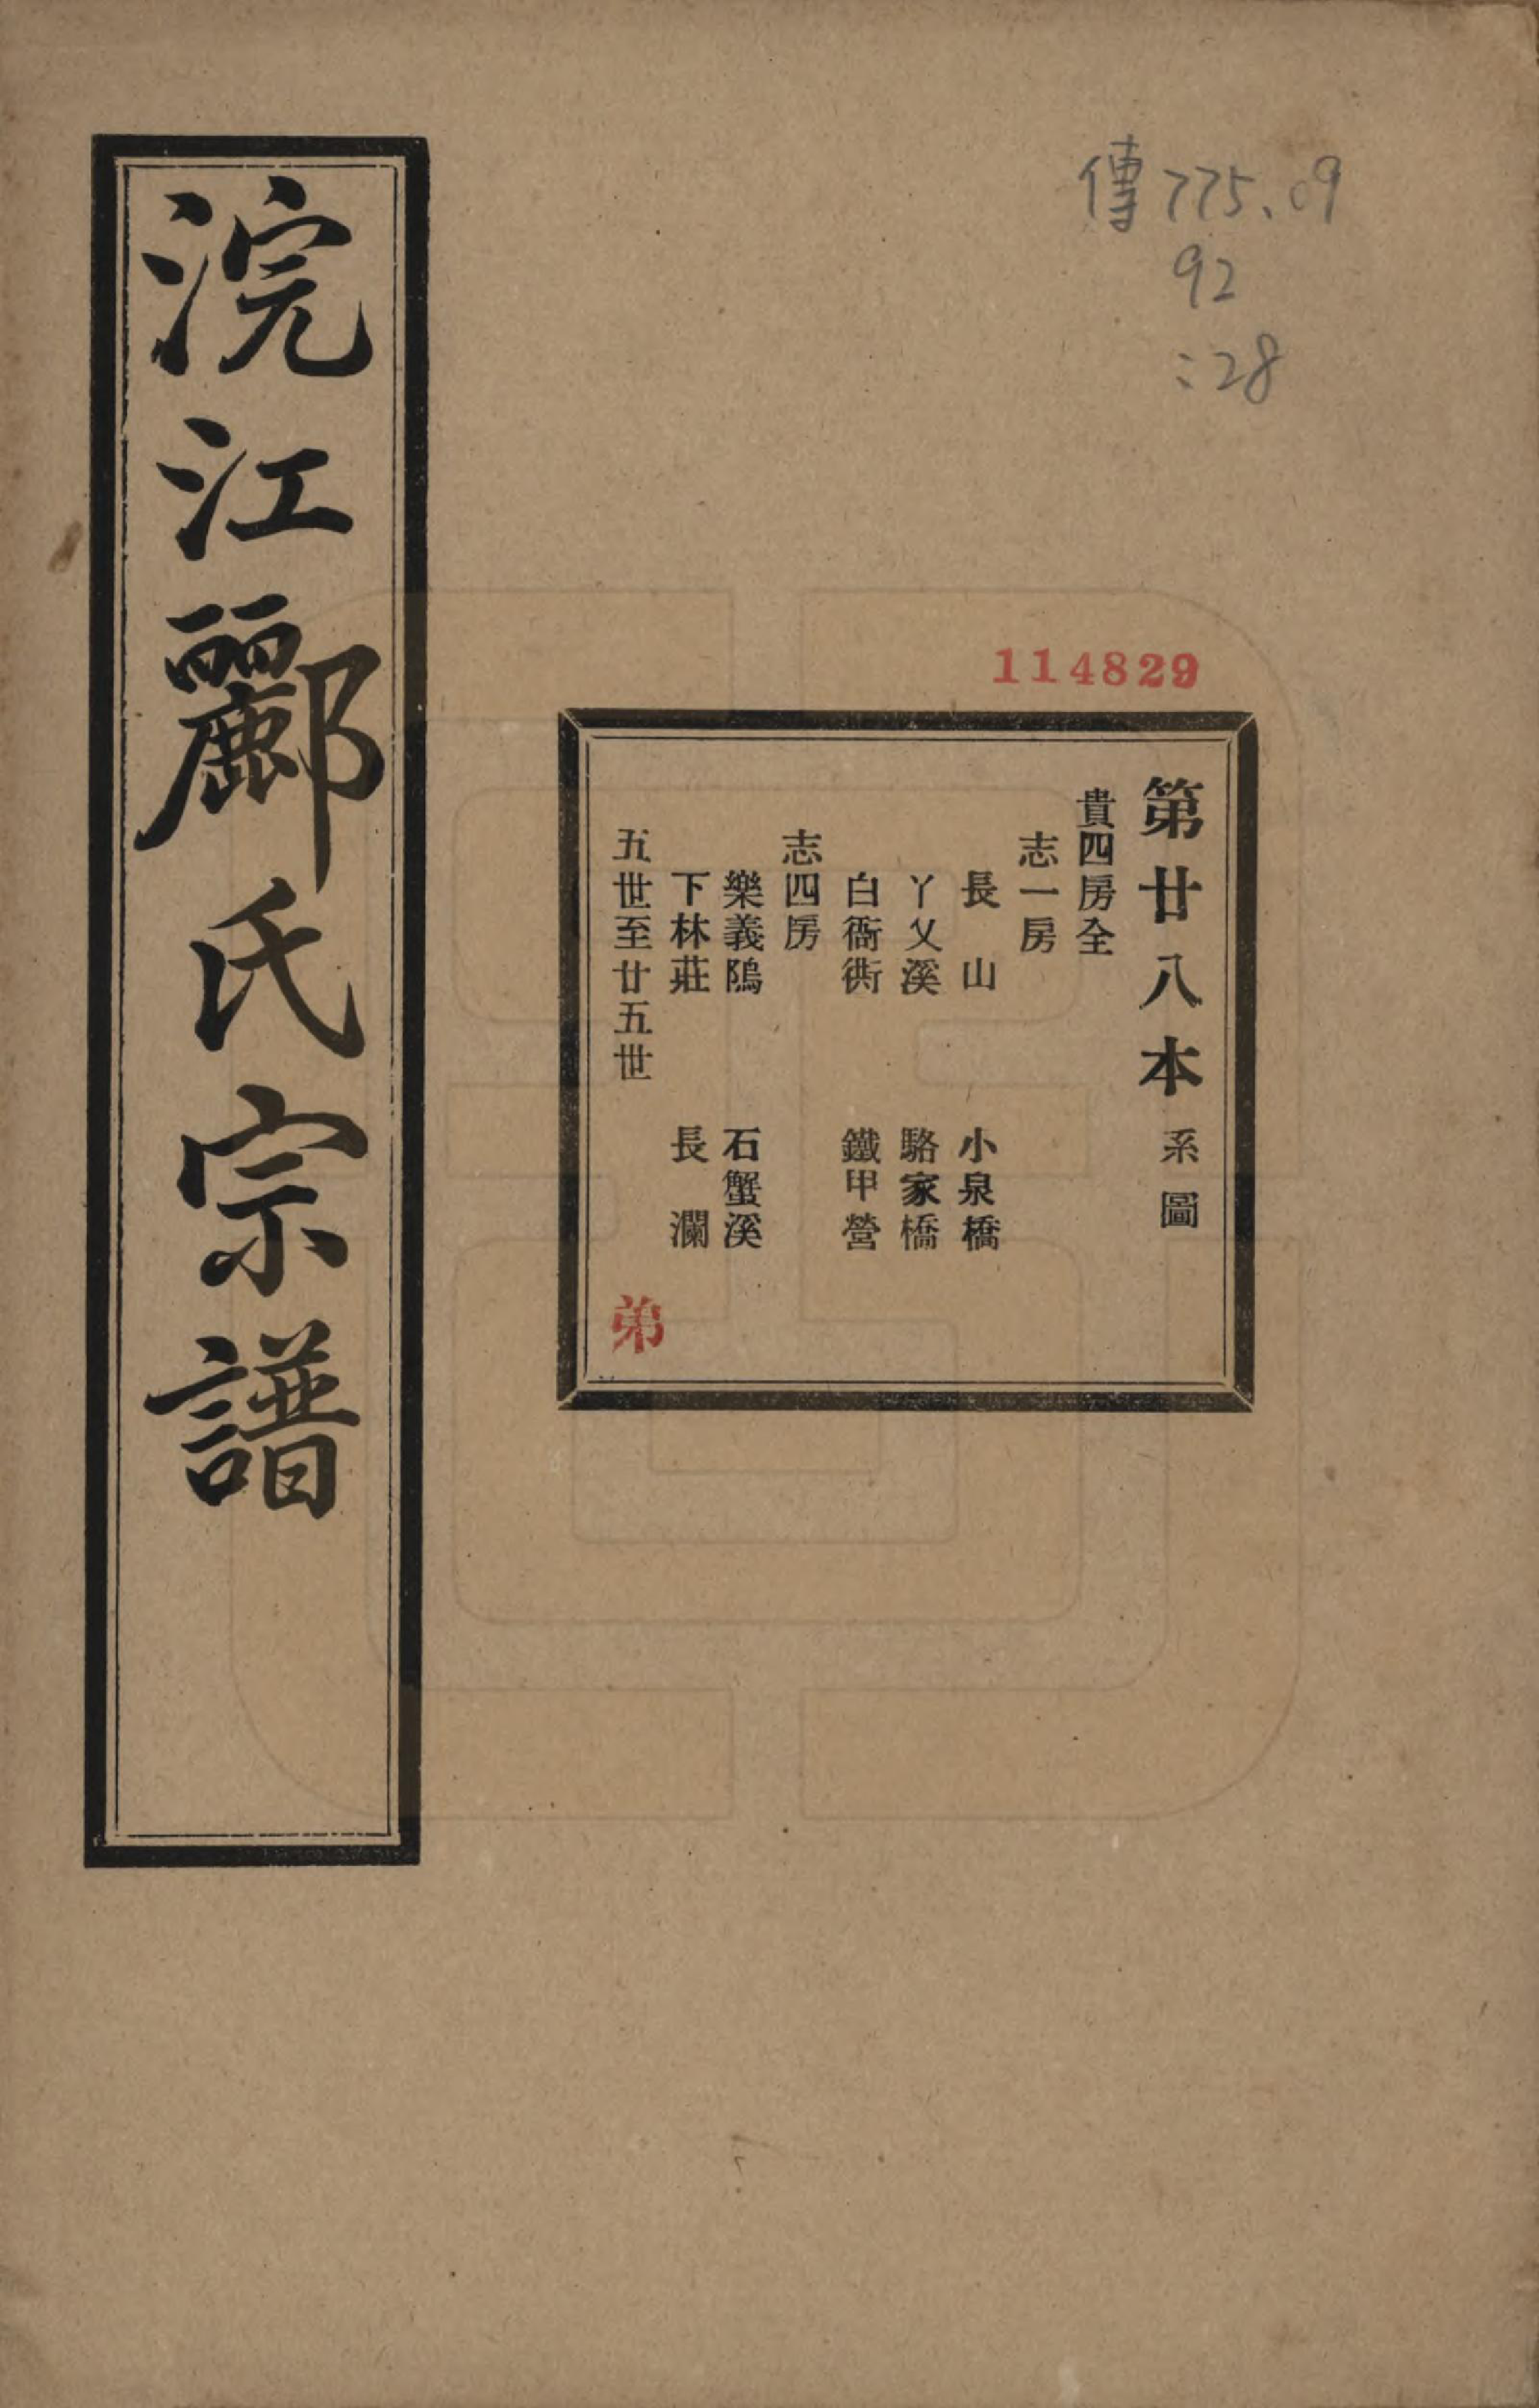 浣江酈氏宗譜
傳775.09
92
:28
114829
第廿八本 系圖
貴四房全
志一房
長山 小泉橋
丫乂溪 駱家橋
白衙衖 鐵甲營
志四房
樂義隖 石蟹溪
下林莊 長瀾
五世至廿五世
弟